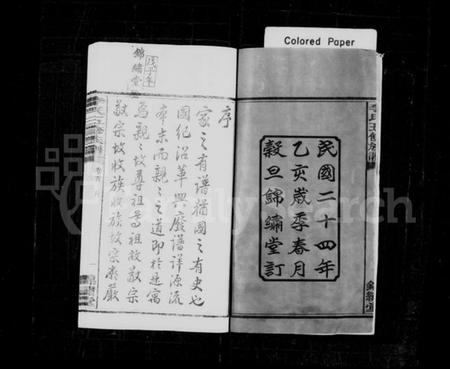 Colored Paper
民國二十四年
乙亥歲季春月
穀旦錦繡堂訂
序
家之有譜猶國之有史也
國紀沿革興廢譜詳源流
本末而親親之道即於是寓
焉親親故尊祖尊祖故敬宗
敬宗故收族收族故宗廟嚴
錦繡堂
FamilySearch